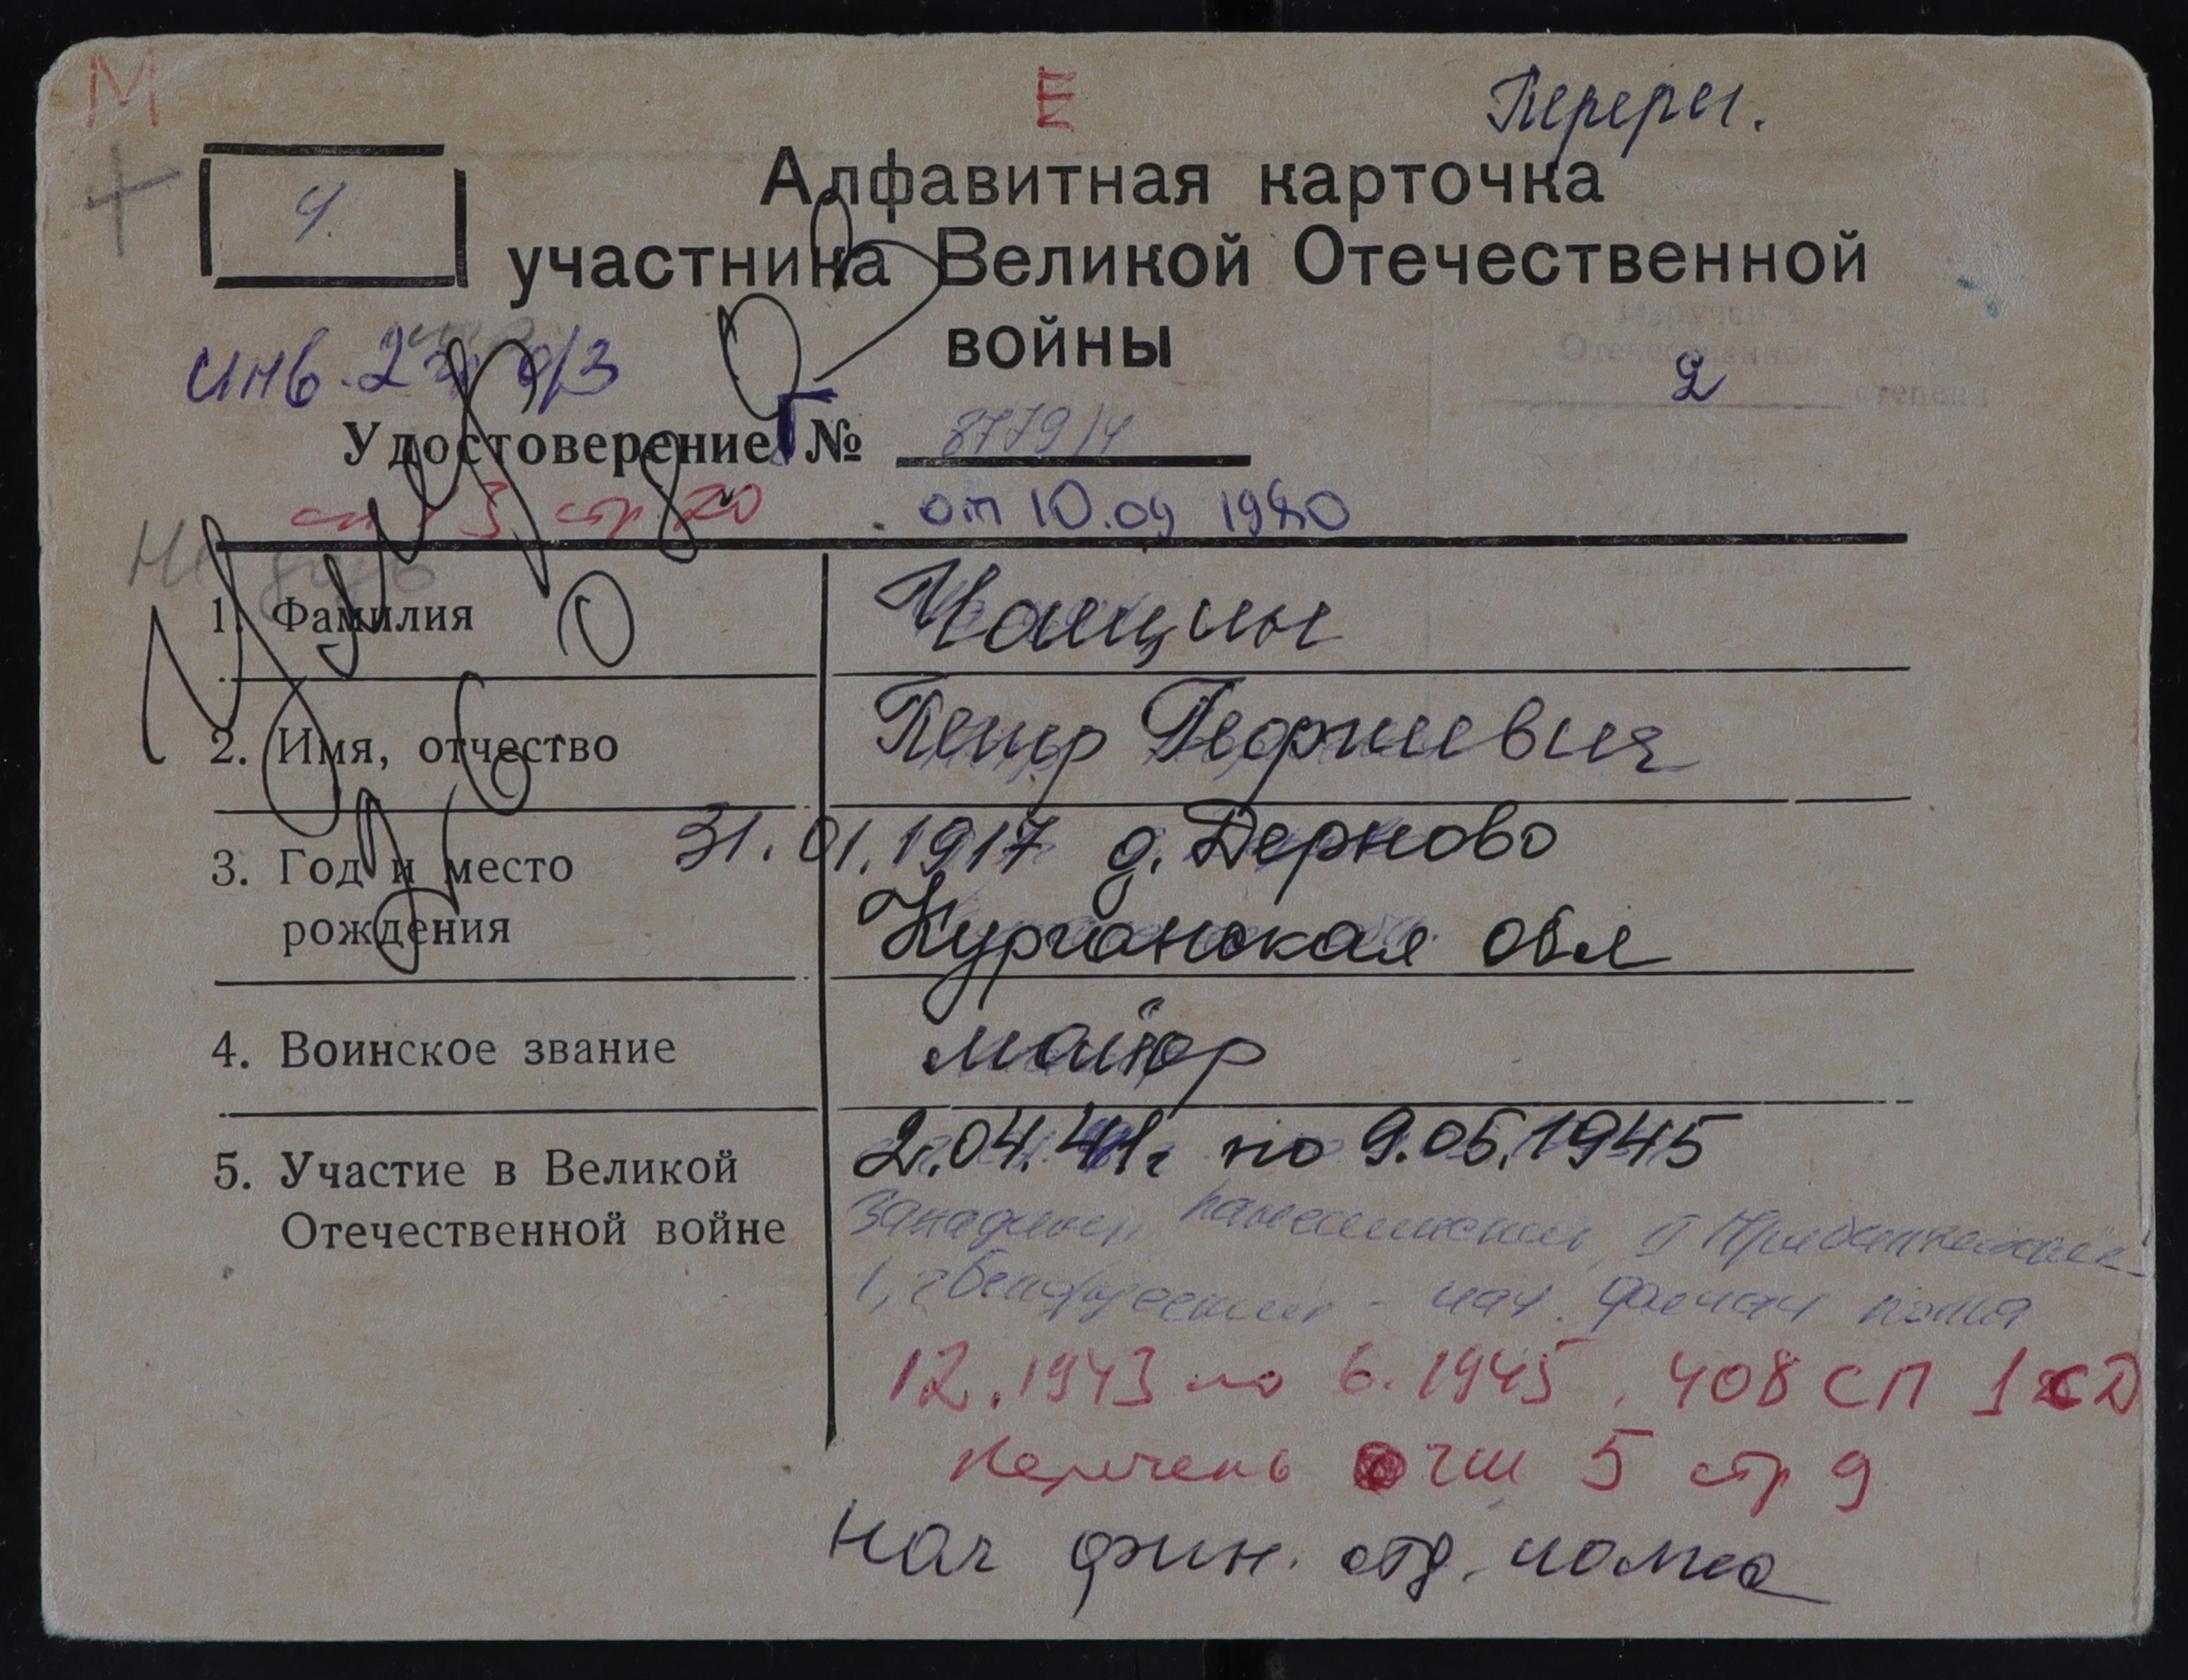 М
Е
Перерег.
Ч.
Алфавитная карточка
участника Великой Отечественной
войны
инв. 2 гр д/з
2
степени
Удостоверение Г № 8779/4
сп 3 стр 20
от 10.09 1980
1. Фамилия Чащин
2. Имя, отчество Петр Георгиевич
3. Год и место рождения 31.01.1917 д. Дерново
Курганская обл
4. Воинское звание майор
5. Участие в Великой Отечественной войне 2.04.41г по 9.05.1945
Западный, II Прибалтийский
1, 2 Белорусский - нач. финчасти полка
12.1943 по 6.1945, 408 СП 1 СД
перечень гш 5 стр 9
нач фин. отд. полка